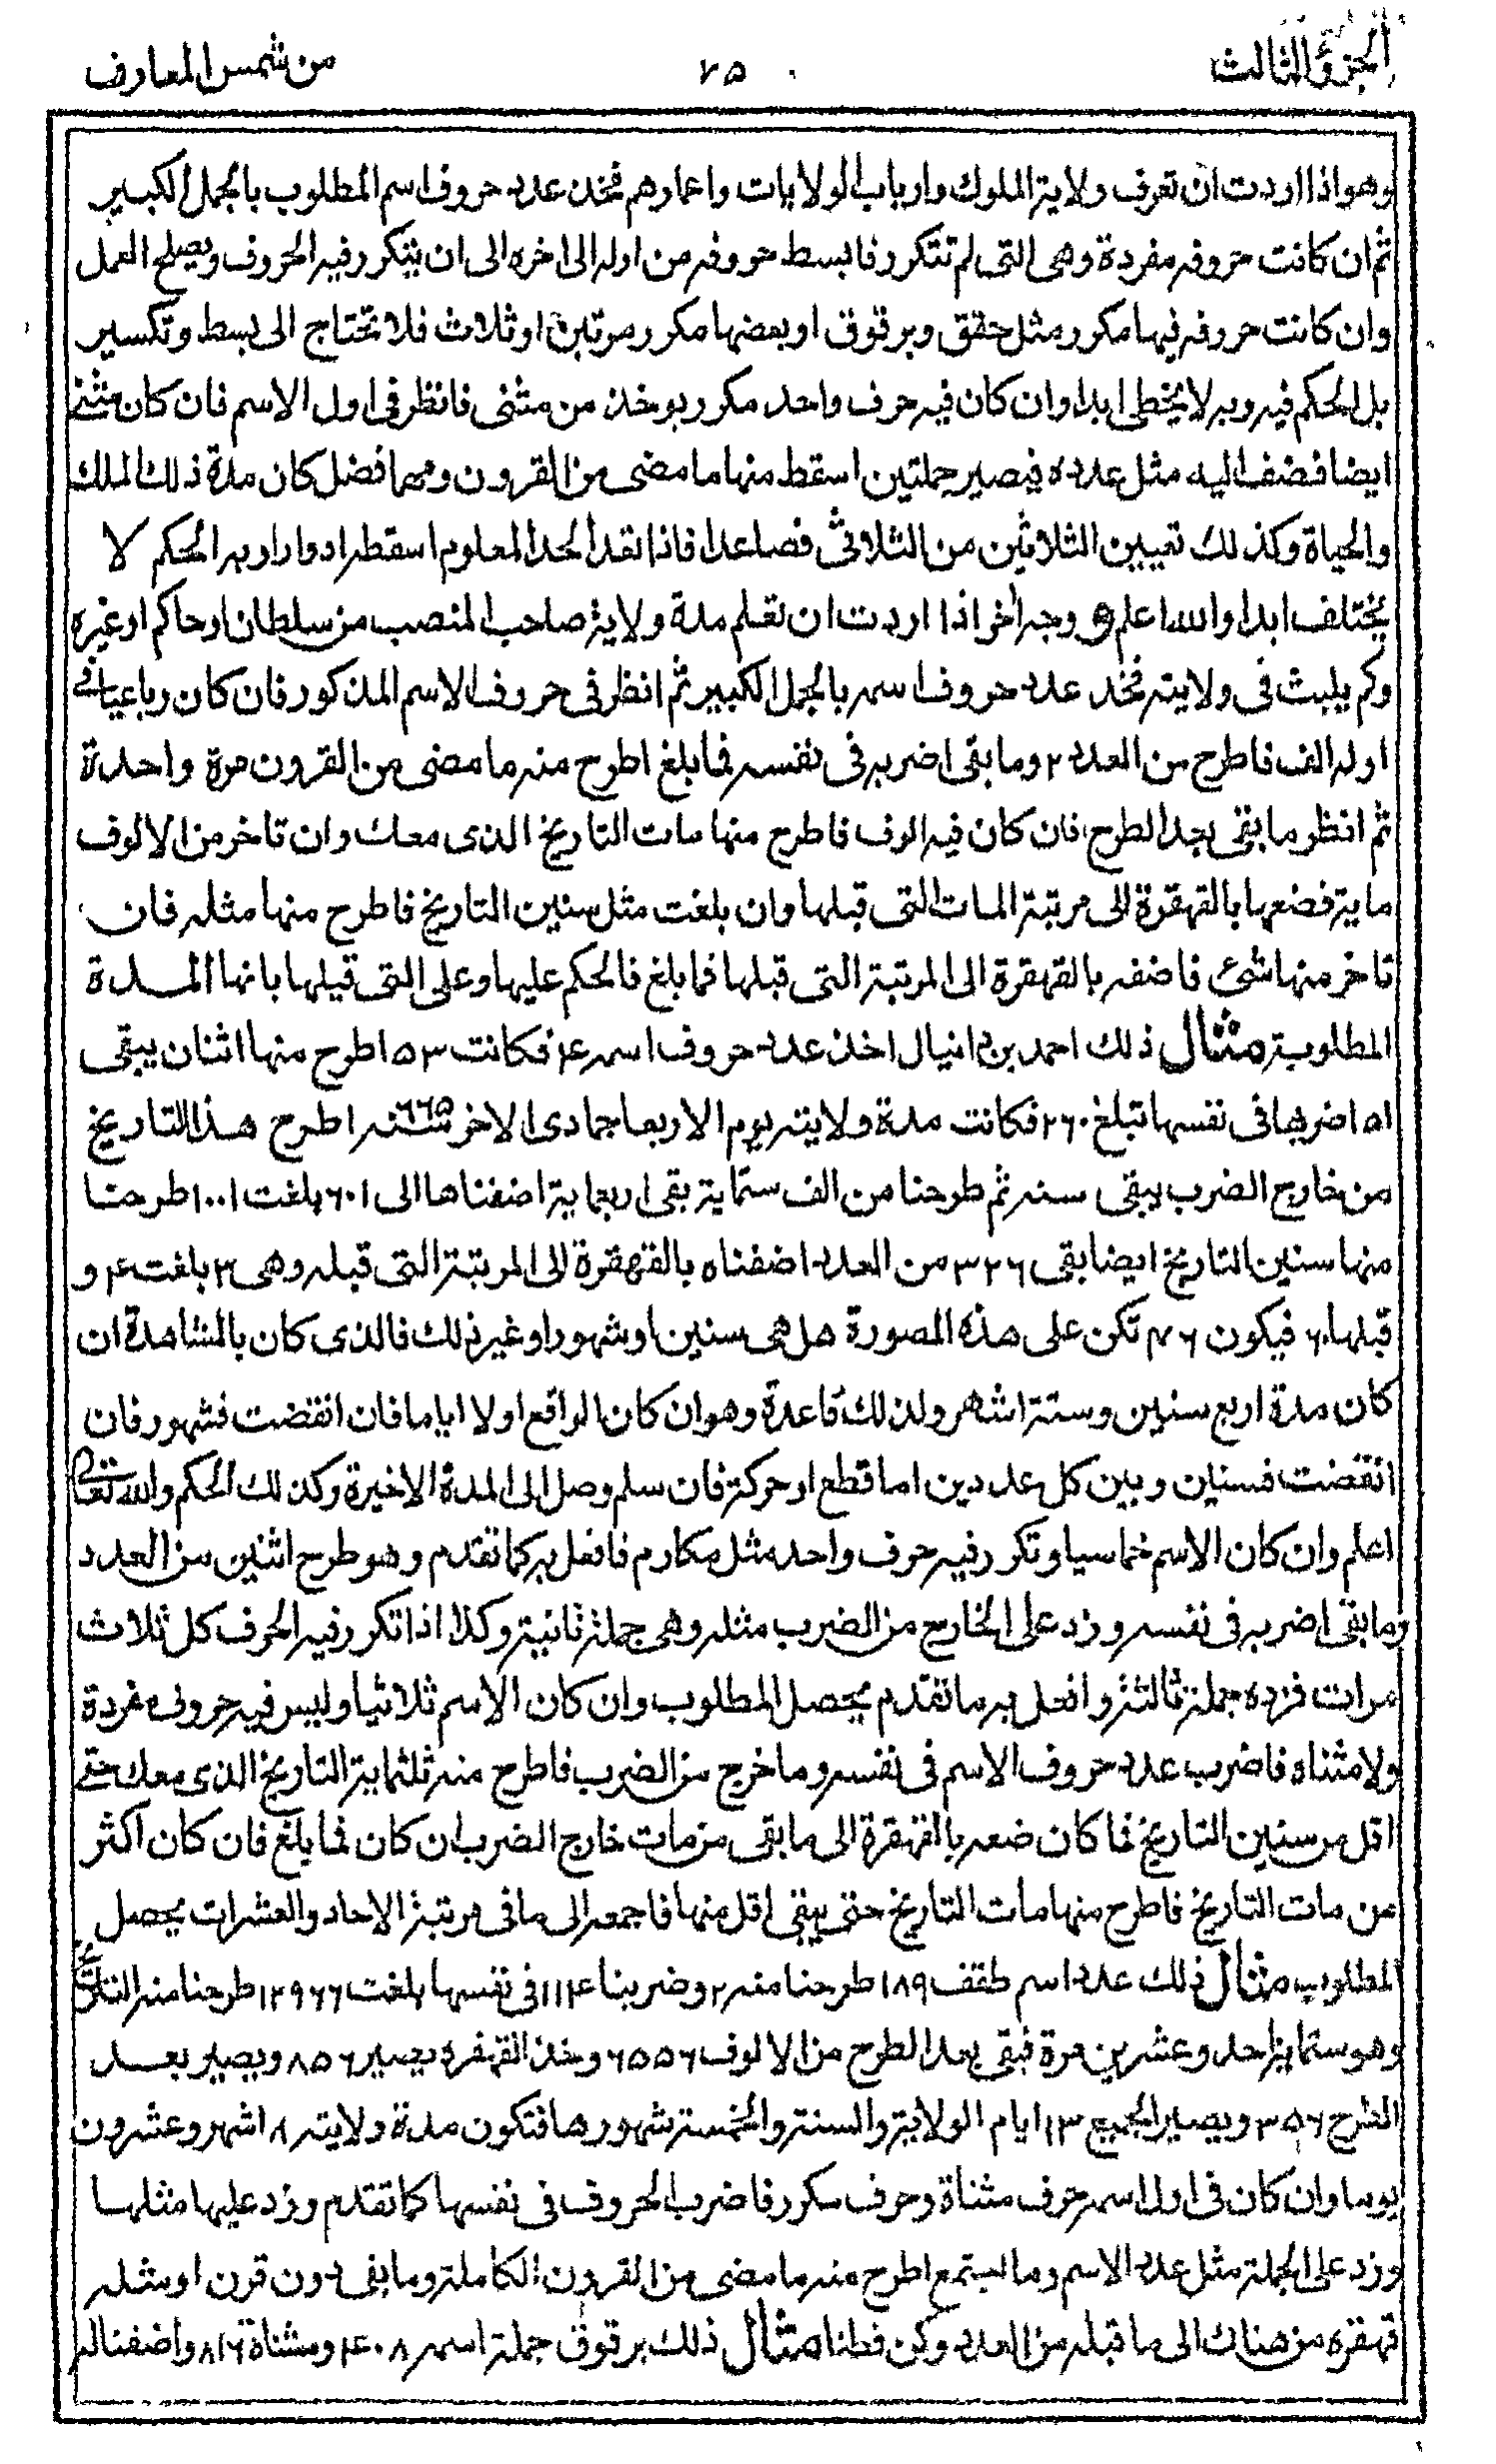 الجزؤ الثالث
٧٥
من شمس المعارف
وهو اذا اردت ان تعرف ولاية الملوك وارباب الولايات واعمارهم فخذ عدد حروف اسم المطلوب بالجمل الكبير
ثم ان كانت حروفه مفردة وهى التى لم تتكرر فابسط حروفه من اوله الى اخره الى ان يتكرر فيه الحروف ويصلح العمل
وان كانت حروفه فيها مكرر مثل حقق وبرقوق او بعضها مكرر مرتين او ثلاث فلا تحتاج الى بسط وتكسير
بل الحكم فيه وبه لا يخطى ابدا وان كان فيه حرف واحد مكرر يوخذ من مثنى فانظر فى اول الاسم فان كان مثنى
ايضا فضف اليه مثل عدده فيصير جملتين اسقط منها ما مضى من القرون ومهما فضل كان مدة ذلك الملك
والحياة وكذلك تعيين الثلاثين من الثلاثى فصاعدا فاذا نقد الحد المعلوم اسقطه ادوارا وبه الحكم لا
يختلف ابدا والله اعلم وجه اخر اذا اردت ان تعلم مدة ولاية صاحب المنصب من سلطان او حاكم او غيره
وكم يلبث فى ولايته فخد عدد حروف اسمه بالجمل الكبير ثم انظر فى حروف الاسم المذكور فان كان رباعيا فى
اوله الف فاطرح من العدد ٢ وما بقى اضربه فى نفسه فما بلغ اطرح منه ما مضى من القرون مرة واحدة
ثم انظر ما بقى بعد الطرح فان كان فيه الوف فاطرح منها مات التاريخ الذى معك وان تاخر من الالوف
ماية فضعها بالقهقرة الى مرتبة المات التى قبلها وان بلغت مثل سنين التاريخ فاطرح منها مثله فان
تاخر منها شئ فاضفه بالقهقرة الى المرتبة التى قبلها فما بلغ فالحكم عليها وعلى التى قبلها بانها المدة
المطلوبة مثال ذلك احمد بن دانيال اخذ عدد حروف اسمه ٤ فكانت ٥٣ اطرح منها اثنان يبقى
٥١ اضربها فى نفسها تبلغ ٢٦٠ فكانت مدة ولايته يوم الاربعا جمادى الاخر سنة ٦٦٥ اطرح هذا التاريخ
من خارج الضرب يبقى سنه ثم طرحنا من الف ستماية بقى اربعماية اضفناها الى ٦٠١ بلغت ١٠٠١ طرحنا
منها سنين التاريخ ايضا بقى ٣٢٦ من العدد اضفناه بالقهقرة الى المرتبة التى قبله وهى ٢ بلغت ٤ و
قبلها ٦٠ فيكون ٧٦ ٣ تكن على هذه الصورة هل هى سنين او شهور او غير ذلك فالذى كان بالمشاهدة ان
كان مدة اربع سنين وستة اشهر ولذلك قاعدة وهو ان كان الواقع اولا اياما فان انقضت فشهور فان
انقضت فسنين وبين كل عددين اما قطع او حركة فان سلم وصل الى المدة الاخيرة وكذلك الحكم والله تعالى
اعلم وان كان الاسم خماسيا وتكرر فيه حرف واحد مثل مكارم فافعل به كما تقدم وهو طرح اثنين من العدد
وما بقى اضربه فى نفسه وزد على الخارج من الضرب مثله وهى جملة ثانية وكذا اذا تكرر فيه الحرف كل ثلاث
مرات فزده جملة ثالثة وافعل به ما تقدم يحصل المطلوب وان كان الاسم ثلاثيا وليس فيه حروف مفردة
ولا مثناه فاضرب عدد حروف الاسم فى نفسه وما خرج من الضرب فاطرح منه ثلثماية التاريخ الذى معك حتى
اقل من سنين التاريخ فما كان ضعه بالقهقرة الى ما بقى من مات خارج الضرب ان كان فما يلغ فان كان اكثر
من مات التاريخ فاطرح منها مأت التاريخ حتى يبقى اقل منها فاجمعه الى ما فى مرتبة الاحاد والعشرات يحصل
المطلوب مثال ذلك عدد اسم طقف ١٨٩ طرحنا منه ٢ وضربنا ١١٤ فى نفسها بلغت ١٢٩٦٦ طرحنا منه التاريخ
وهو ستماية احد وعشرين مرة فبقى بعد الطرح من الالوف ٦٥٥٦ وخذ القهقرة يصير ٨٥٦ ويصير بعد
الطرح ٣٥٦ ويصير الجميع ١٣ ايام الولاية والسنة والخمسة شهورها فتكون مدة ولايته ٨ اشهر وعشرون
يوما وان كان فى اول اسمه حرف مثناة وحرف مكرر فاضرب الحروف فى نفسها كما تقدم وزد عليها مثلها
وزد على الجملة مثل عدد الاسم وما اجتمع اطرح منه ما مضى من القرون الكاملة وما بقى دون قرن او مثله
قهقره من هناك الى ما قبله من العدد وكن فطنا مثال ذلك برقوق جملة اسمه ٤٠٨ ومثناة ٨١٦ واضفنا له